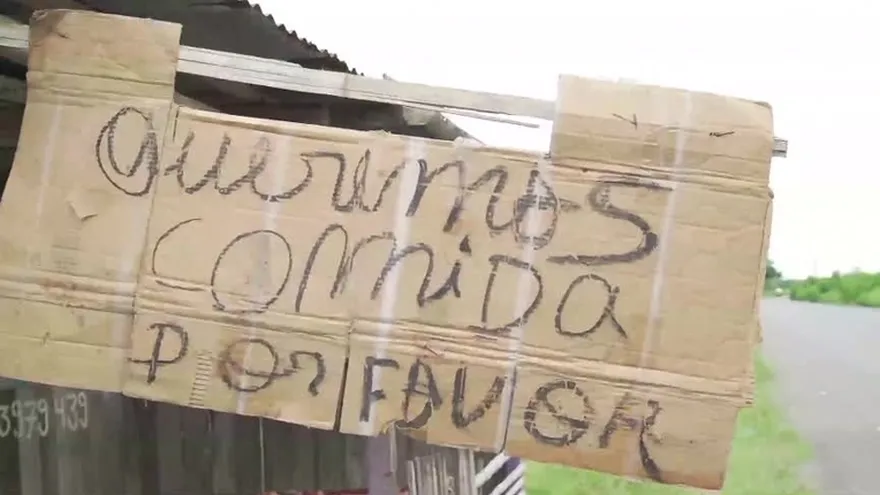 Queremos
comiDa
por FAVOR
3979439